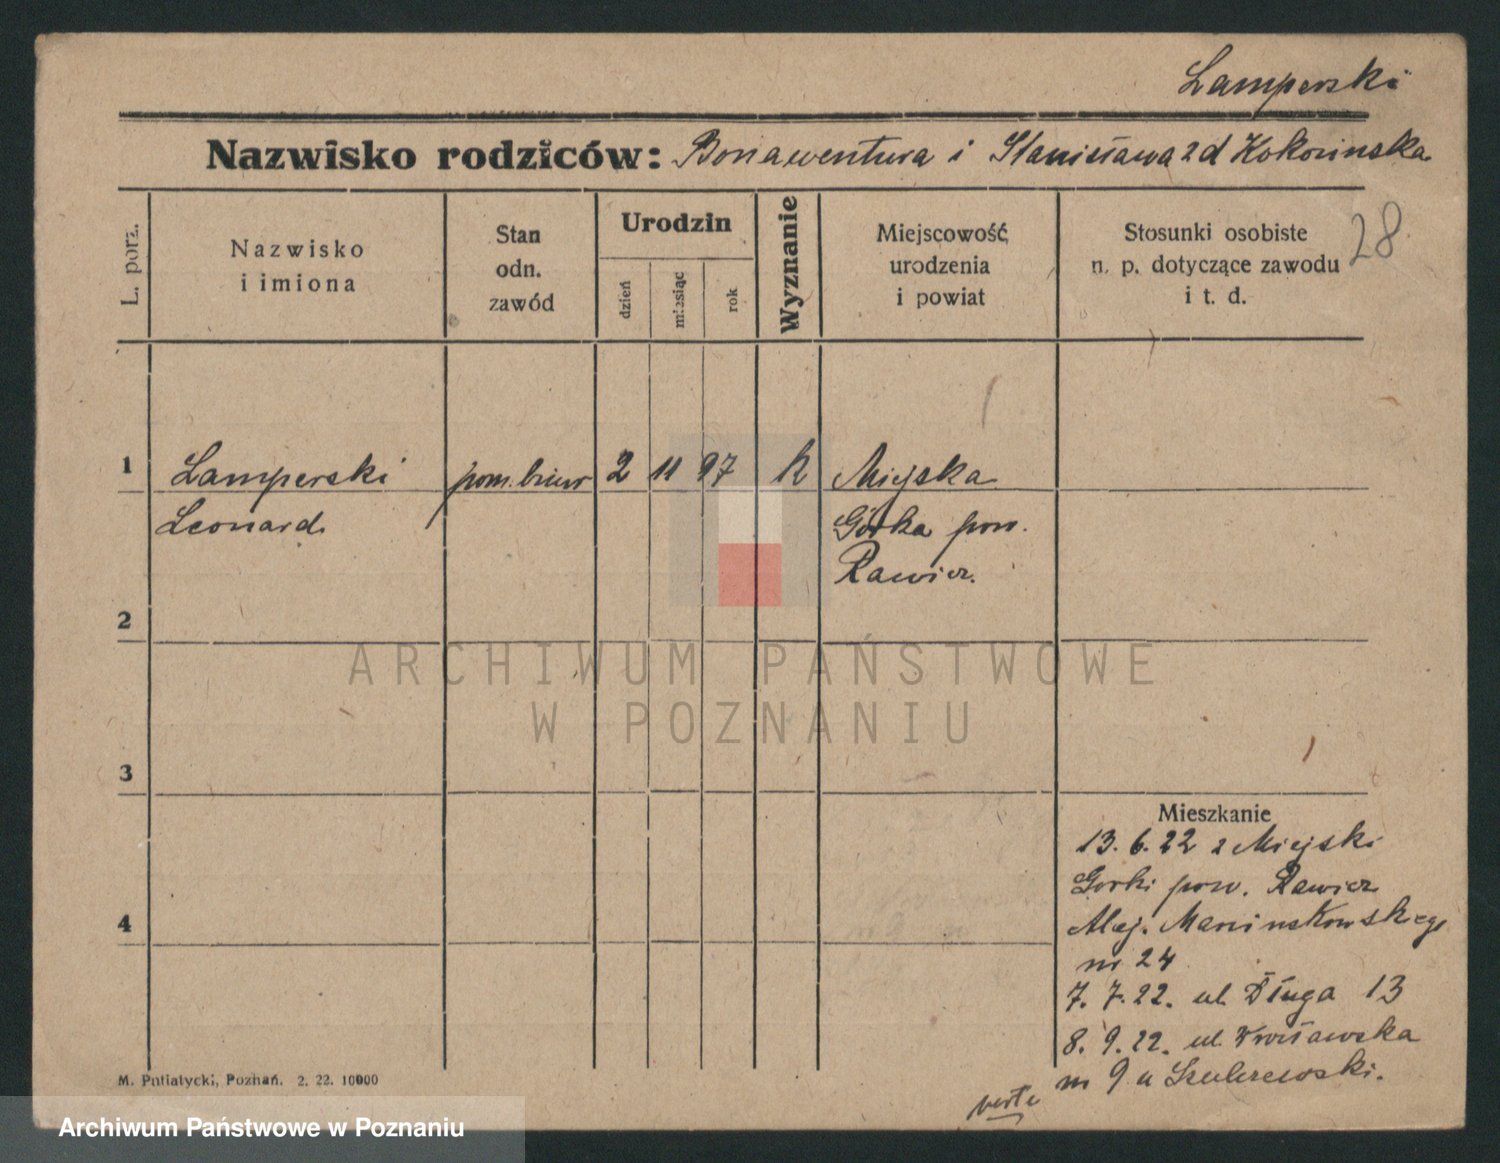 Lamperski
Nazwisko rodziców: Bonawentura i Stanisława z d Kokocinska
28
L. porz.
Nazwisko
i imiona
Stan
odn.
zawód
Urodzin
dzień
miesiąc
rok
Wyznanie
Miejscowość
urodzenia
i powiat
Stosunki osobiste
n. p. dotyczące zawodu
i t. d.
1
Lamperski
pom. biur
2
11
97
k
Miejska
Leonard
Górka pow.
Rawicz.
2
3
4
Mieszkanie
13. 6. 22 z Miejski
Gorki pow. Rawicz
Alej. Marcinskowskiego
nr 24
7. 7. 22. ul. Długa 13
8. 9. 22. ul. Wrocławska
nr 9 u
verte
M. Putiatycki, Poznań. 2. 22. 10000
ARCHIWUM PAŃSTWOWE
W POZNANIU
Archiwum Państwowe w Poznaniu